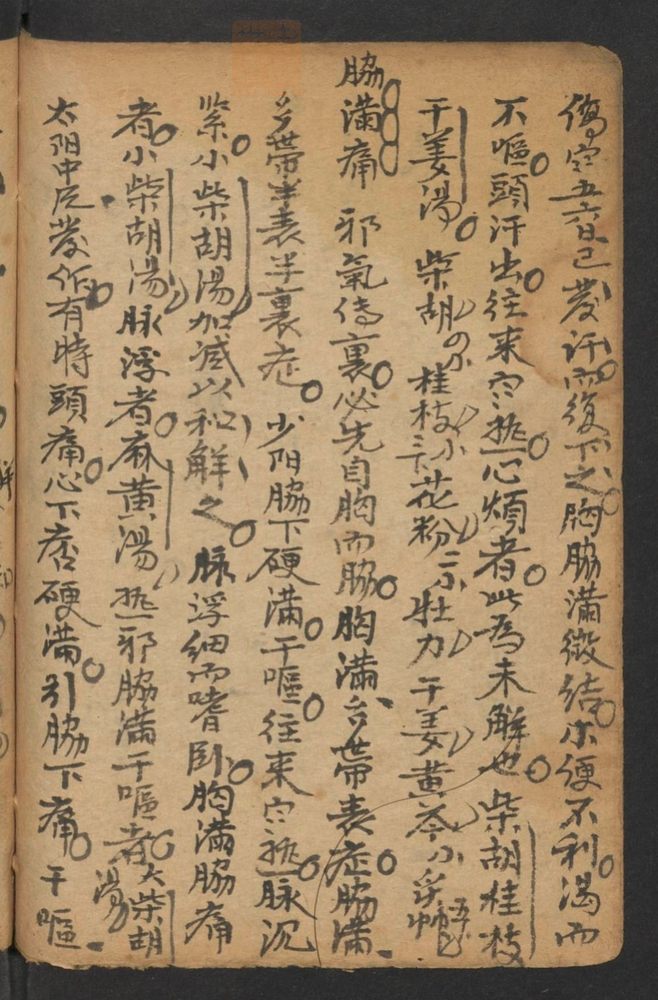 傷寒五六日已發汗而復下之胸脇滿微結小便不利渴而
不嘔頭汗出往來寒热心煩者此為未解也柴胡桂枝
干姜湯 柴胡 桂枝 花粉 牡力 干姜 黄芩
脇滿痛 邪氣傳裏必先自胸而脇胸滿多帶表症脇滿
多帶半表半裏症 少阳脇下硬滿干嘔往来寒热脉沉
紧小柴胡湯加减以和解之 脉浮細而嗜卧胸滿脇痛
者小柴胡湯脉浮者麻黄湯 热邪脇滿干嘔者大柴胡湯
太阳中風發作有時頭痛心下痞硬滿引脇下痛干嘔